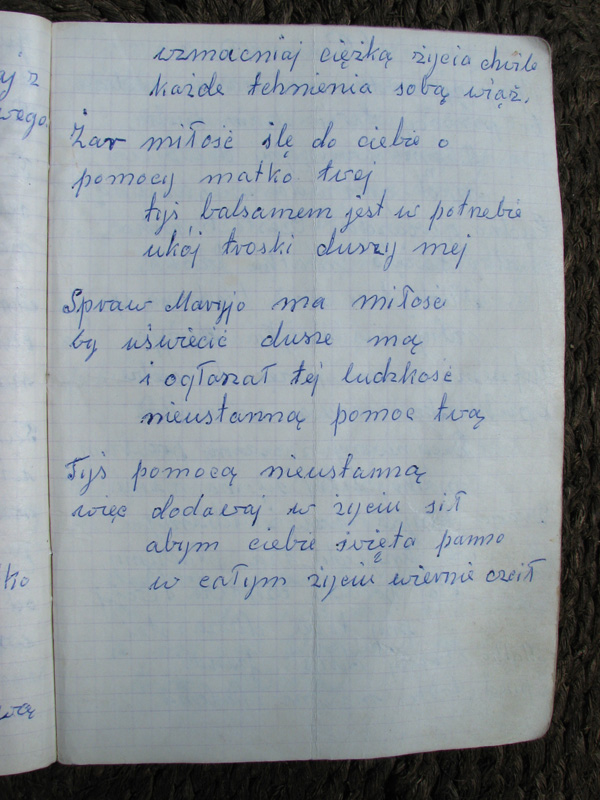 wzmacniaj ciężką życia chwile
każde tchnienia sobą wiąż.
Żar miłość ślę do ciebie o
pomocy matko twej
tyś balsamem jest w potrzebie
ukój troski duszy mej
Spraw Maryjo ma miłość
by uświecić dusze mą
i ogłaszał tej ludzkość
nieustanną pomoc twą
Tyś pomocą nieustanną
więc dodawaj w życiu sił
abym ciebie święta panno
w całym życiu wiernie czcił